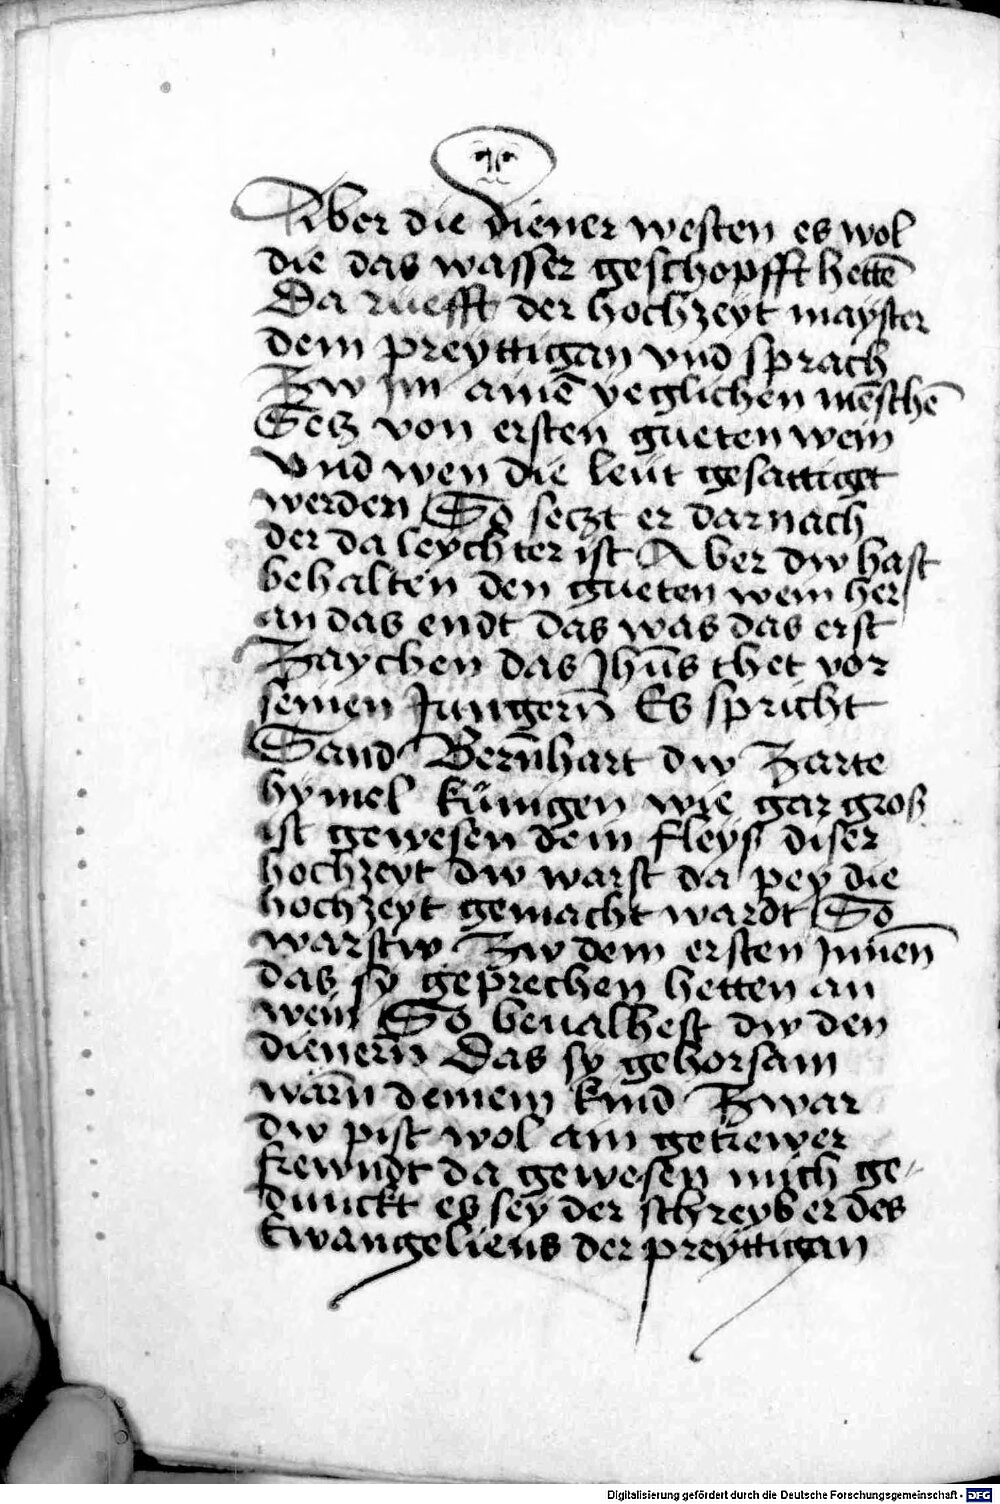 Aber die diener westen es wol
die das wasser geschopfft hettē
Da ruefft der hochzeyt mayster
dem preyttigan vnd sprach
Zw im ainē yeglichen mēschē
Setz von ersten gueten wein
Vnd wen die leüt gesattiget
werden So seczt er darnach
der da leychter ist Aber dw hast
behalten den gueten wein her
an das endt das was das erst
Zaychen das Jhūs thet vor
seinen Jungerñ Es spricht
Sand Berñhart dw Zarte
hymel künigen wie gar gros
ist gewesen dein fleys diser
hochzeyt dw warst da pey die
hochzeyt gemacht wardt So
warstw Zw dem ersten Jnnen̄
das sy geprechen hetten an
wein So beualhest dw den
dienerñ Das sy gehorsam
warñ deinem kind Zwar
dw pist wol ain getrewer
frewndt da gewesen mich ge-
dunckt es sey der schreyber des
Ewangeliens der preyttigan
Digitalisierung gefördert durch die Deutsche Forschungsgemeinschaft - DFG